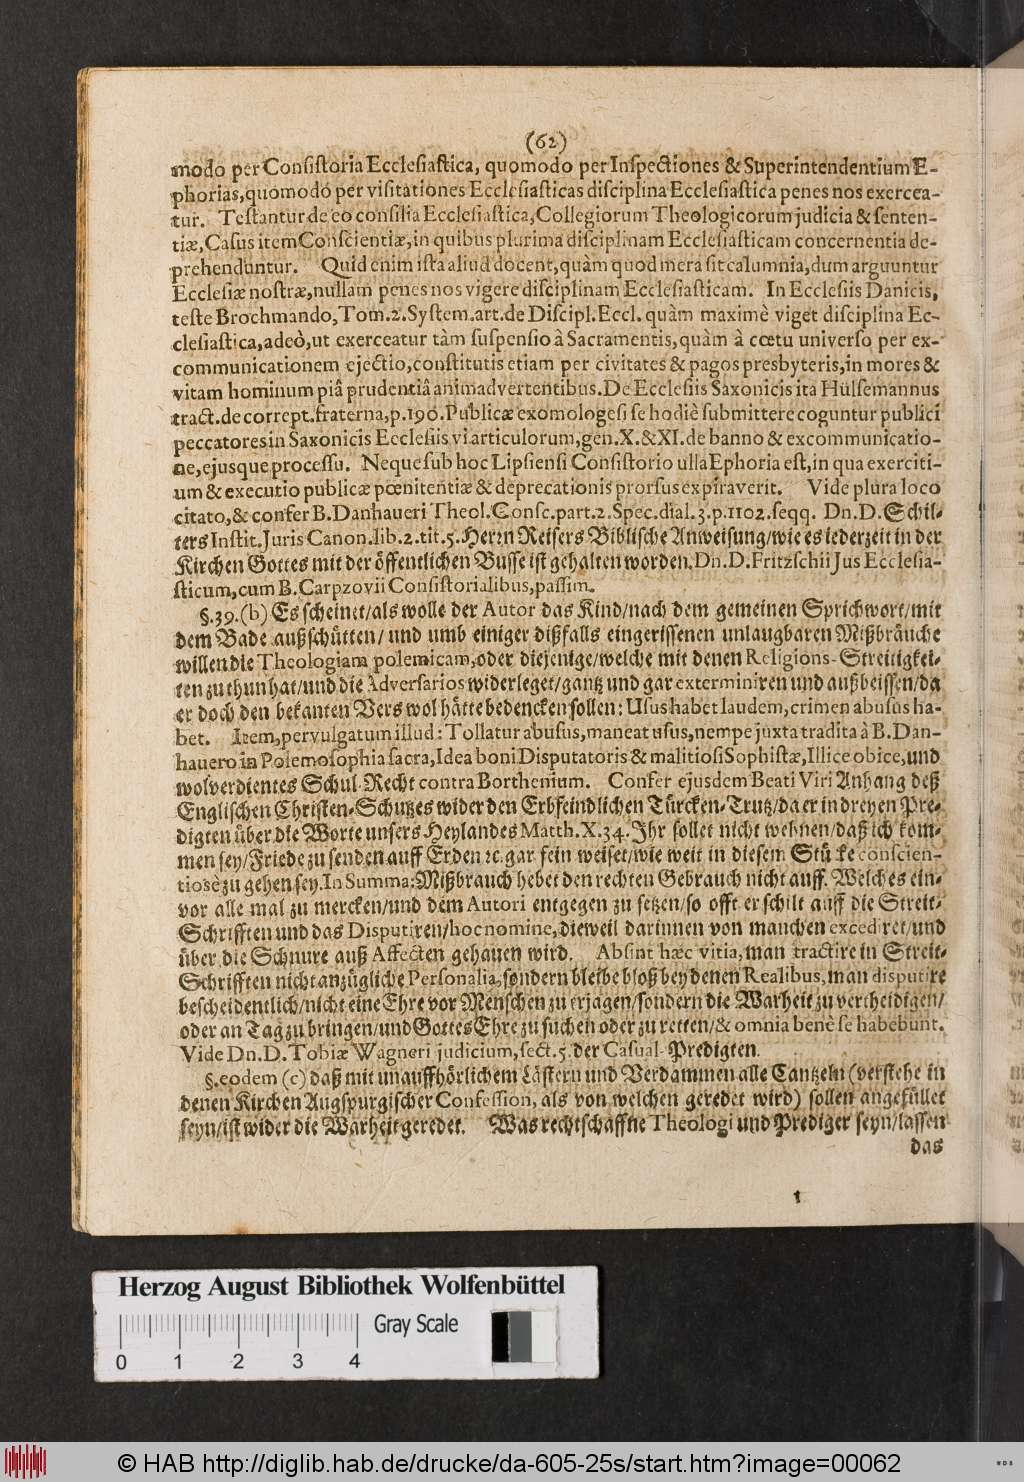 (62)
modo per Consistoria Ecclesiastica, quomodo per Inspectiones & Superintendentium E-
phorias, quomodo per visitationes Ecclesiasticas disciplina Ecclesiastica penes nos exercea-
tur. Testantur de eo consilia Ecclesiastica, Collegiorum Theologicorum judicia & senten-
tiæ, Casus item Conscientiæ, in quibus plurima disciplinam Ecclesiasticam concernentia de-
prehenduntur. Quid enim ista aliud docent, quàm quod mera sit calumnia, dum arguuntur
Ecclesiæ nostræ, nullam penes nos vigere disciplinam Ecclesiasticam. In Ecclesiis Danicis,
teste Brochmando, Tom. 2. System. art. de Discipl. Eccl. quàm maximè viget disciplina Ec-
clesiastica, adeò, ut exerceatur tàm suspensio â Sacramentis, quàm à cœtu universo per ex-
communicationem ejectio, constitutis etiam per civitates & pagos presbyteris, in mores &
vitam hominum piâ prudentiâ animadvertentibus. De Ecclesiis Saxonicis ita Hülsemannus
tract. de corrept. fraterna, p. 190. Publicæ exomologesi se hodiè submittere coguntur publici
peccatores in Saxonicis Ecclesiis vi articulorum, gen. X. & XI. de banno & excommunicatio-
ne, ejusque processu. Neque sub hoc Lipsiensi Consistorio ulla Ephoria est, in qua exerciti-
um & executio publicæ pœnitentiæ & deprecationis prorsus expiraverit. Vide plura loco
citato, & confer B. Danhaueri Theol. Consc. part. 2. Spec. dial. 3. p. 1102. seqq. Dn. D. Schil-
ters Instit. Juris Canon. lib. 2. tit. 5. Herrn Reisers Biblische Anweisung/ wie es iederzeit in der
Kirchen Gottes mit der öffentlichen Busse ist gehalten worden. Dn. D. Fritzschii Jus Ecclesia-
sticum, cum B. Carpzovii Consistorialibus, passim.
§. 39. (b) Es scheinet/ als wolle der Autor das Kind/ nach dem gemeinen Sprichwort/ mit
dem Bade außschütten/ und umb einiger dißfalls eingerissenen unlaugbaren Mißbräuche
willen die Theologiam polemicam, oder diejenige/ welche mit denen Religions-Streitigkei-
ten zu thun hat/ und die Adversarios widerleget/ gantz und gar exterminiren und außbeissen/ da
er doch den bekanten Vers wol hätte bedencken sollen: Usus habet laudem, crimen abusus ha-
bet. Item, pervulgatum illud: Tollatur abusus, maneat usus, nempe juxta tradita à B. Dan-
hauero in Polemosophia sacra, Idea boni Disputatoris & malitiosi Sophistæ, Illice obice, und
wolverdientes Schul-Recht contra Borthenium. Confer ejusdem Beati Viri Anhang deß
Englischen Christen-Schutzes wider den Erbfeindlichen Türcken-Trutz/ da er in dreyen Pre-
digten über die Worte unsers Heylandes Matth. X. 34. Ihr sollet nicht wehnen/ daß ich kom-
men sey/ Friede zu senden auff Erden ꝛc. gar fein weiset/ wie weit in diesem Stücke conscien-
tiosè zu gehen sey. In Summa: Mißbrauch hebet den rechten Gebrauch nicht auff. Welches ein-
vor alle mal zu mercken/ und dem Autori entgegen zu setzen/ so offt er schilt auff die Streit-
Schrifften und das Disputiren/ hoc nomine, dieweil darinnen von manchen excediret/ und
über die Schnure auß Affecten gehauen wird. Absint hæc vitia, man tractire in Streit-
Schrifften nicht anzügliche Personalia, sondern bleibe bloß bey denen Realibus, man disputire
bescheidentlich/ nicht eine Ehre vor Menschen zu erjagen/ sondern die Warheit zu vertheidigen/
oder an Tag zu bringen/ und Gottes Ehre zu suchen oder zu retten/ & omnia benè se habebunt.
Vide Dn. D. Tobiæ Wagneri judicium, sect. 5. der Casual-Predigten.
§. eodem (c) daß mit unauffhörlichem Lästern und Verdammen alle Cantzeln (verstehe in
denen Kirchen Augspurgischer Confession, als von welchen geredet wird) sollen angefüllet
seyn/ ist wider die Warheit geredet. Was rechtschaffne Theologi und Prediger seyn/ lassen
das
Herzog August Bibliothek Wolfenbüttel
Gray Scale
0 1 2 3 4
© HAB http://diglib.hab.de/drucke/da-605-25s/start.htm?image=00062